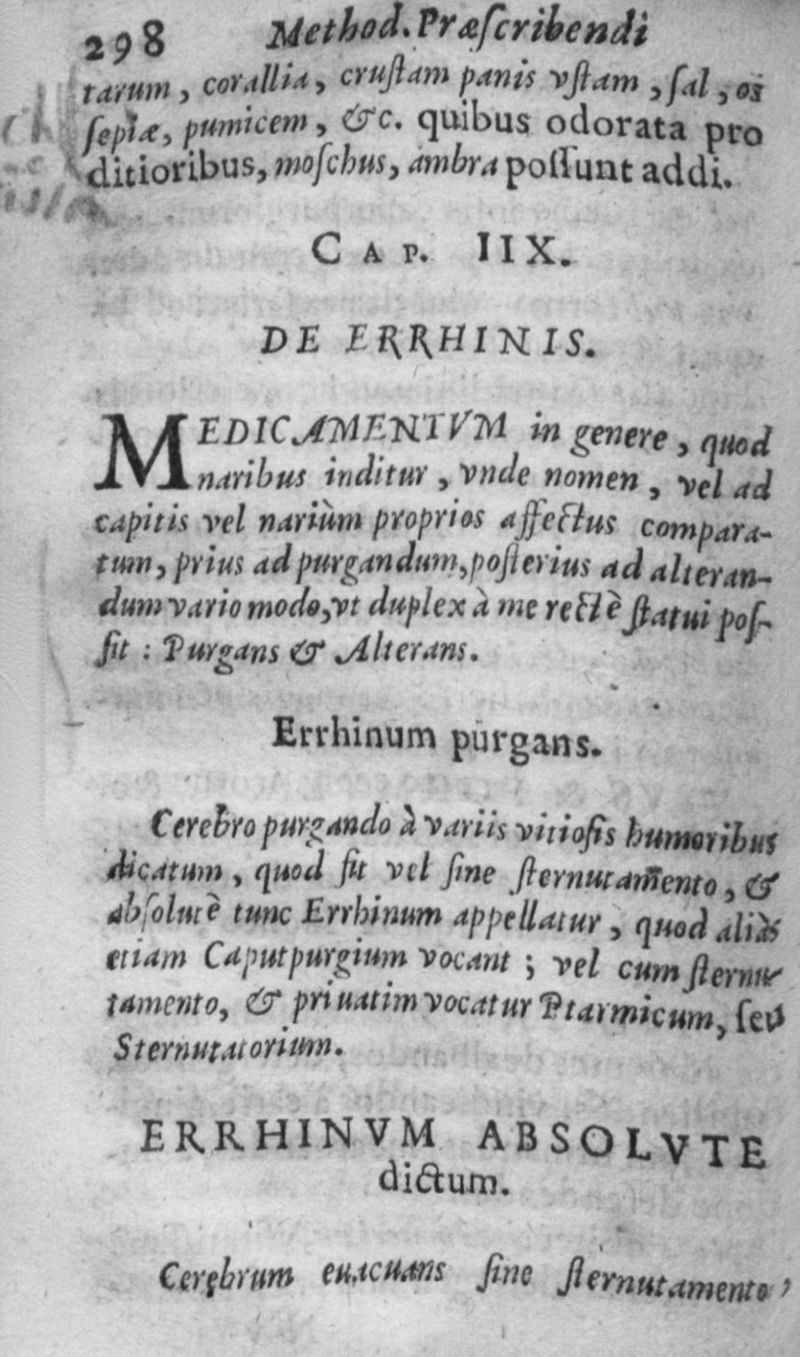 298 Method. Præſcribendi
tarum, corallia, cruſtam panis vſtam, ſal, os
ſepiæ, pumicem, &c. quibus odorata pro
ditioribus, moſchus, ambra poſſunt addi.
CAP. IIX.
DE ERRHINIS.
MEDICAMENTVM in genere, quod
naribus inditur, vnde nomen, vel ad
capitis vel nariùm proprios affectus compara-
tum, prius ad purgandum, poſterius ad alteran-
dum vario modo, vt duplex à me rectè ſtatui poſ-
ſit: Purgans & Alterans.
Errhinum purgans.
Cerebro purgando à variis vitioſis humoribus
dicatum, quod fit vel ſine ſternutamento, &
abſolutè tunc Errhinum appellatur, quod aliàs
etiam Caputpurgium vocant; vel cum ſternu-
tamento, & priuatim vocatur Ptarmicum, ſeu
Sternutatorium.
ERRHINVM ABSOLVTE
dictum.
Cerebrum euacuans ſine ſternutamento,